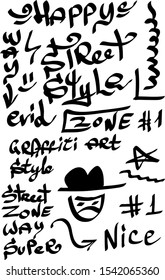 HAPPY
STREET
STYLE
evid
ZONE #1
GRAFFITI ART
Style
Street
ZONE
WAY
SUPER
#1
Nice
shutterstock.com · 1542065360